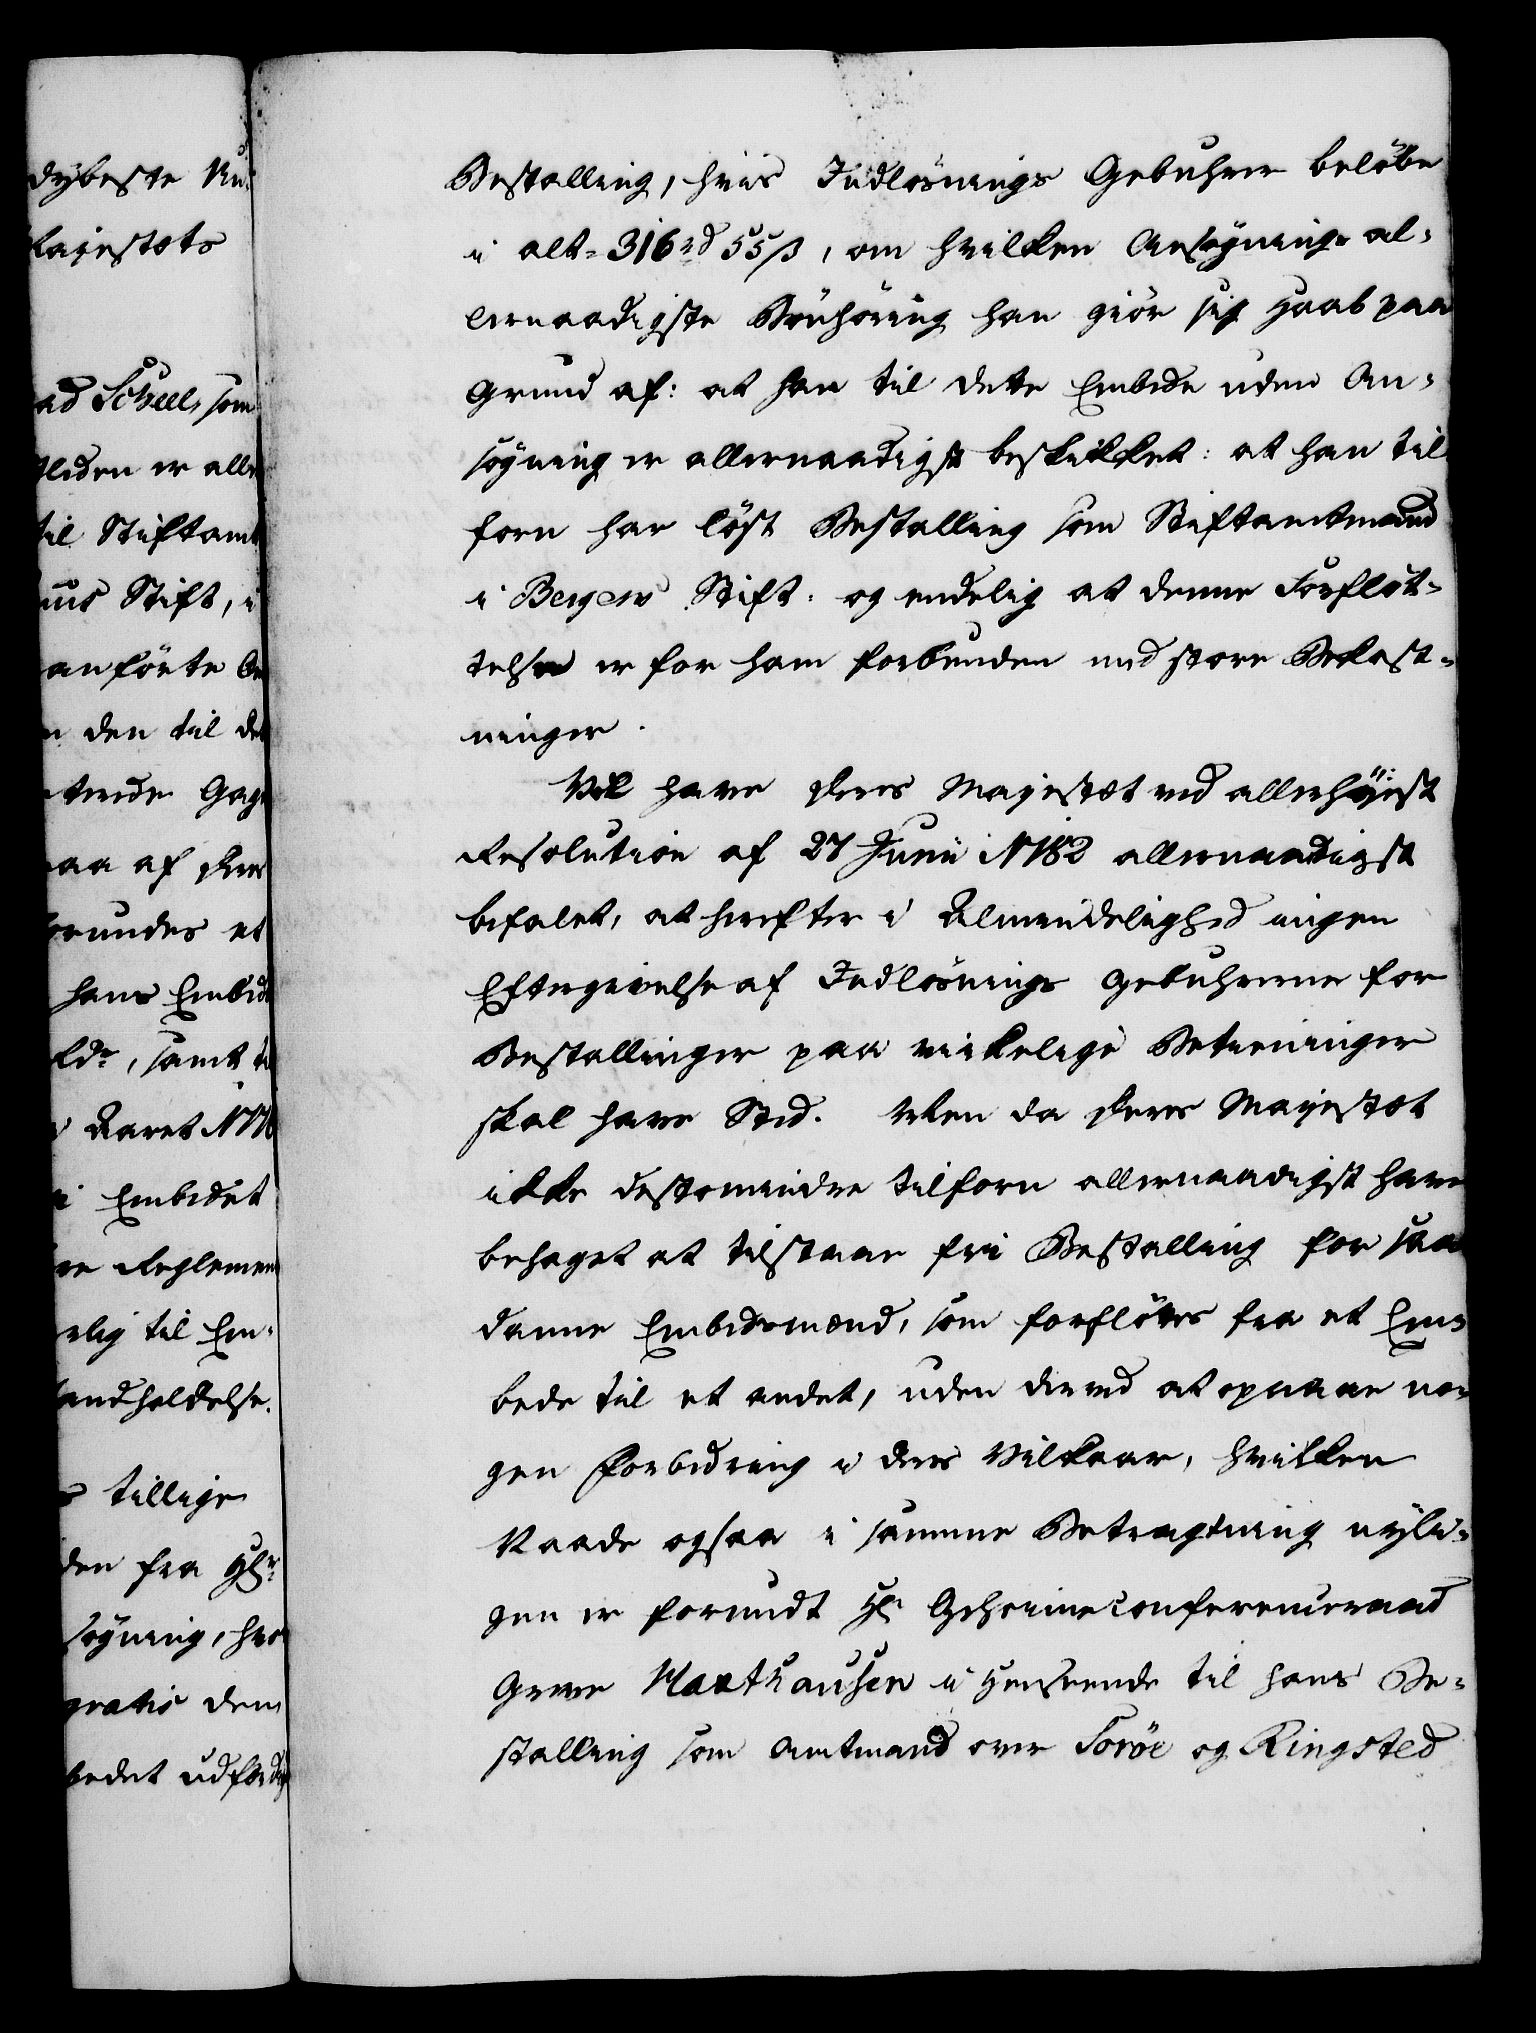 dybeste Un¬
Majestæts
ad Scheel, som
tiden er aller
til Stiftamt
uus Stift, i
anførte An
den til det
tende Gage
paa af Deres
grundes et
hans Embede
, samt
Aaret
i Embedet
re Reglement
rlig til Em¬
andholdelse.
tillige
den fra Hr.
søgning, hvo
gratis den
bedet udfærdig
Bestalling, hvis Indløsnings Gebuhrer beløbe
i alt = 316 rd 55 ß, om hvilken Ansøgnings al¬
lernaadigste Bønhøring han giør sig Haab paa
Grund af: at han til dette Embede uden An¬
søgning er allernaadigst beskikket: at han til
forn har løst Bestalling som Stiftamtmand
i Bergens Stift: og endelig at denne Forflöt¬
telse er for ham forbunden med store Bekost¬
ninger.
Vel have Deres Majestæt ved allerhøjest
Resolution af 27 Junii 1782 allernaadigst
befalet, at herefter i Almindelighed ingen
Eftergivelse af Indløsnings Gebuhrerne for
Bestallinger paa virkelige Betieninger
skal have Sted. Men da Deres Majestæt
ikke destomindre tilforn allernaadigst have
behaget at tilstaae frie Bestalling for saa
danne Embedsmænd, som forflöttes fra et Em¬
bede til et andet, uden derved at opnaae no¬
gen Forbedring i deres Vilkaar, hvilken
Naade ogsaa i samme Betragtning nyli¬
gen er forundt Hr. Geheimeconferenceraad
Greve Haxthausen i Henseende til hans Be¬
stalling som Amtmand over Soröe og Ringsted